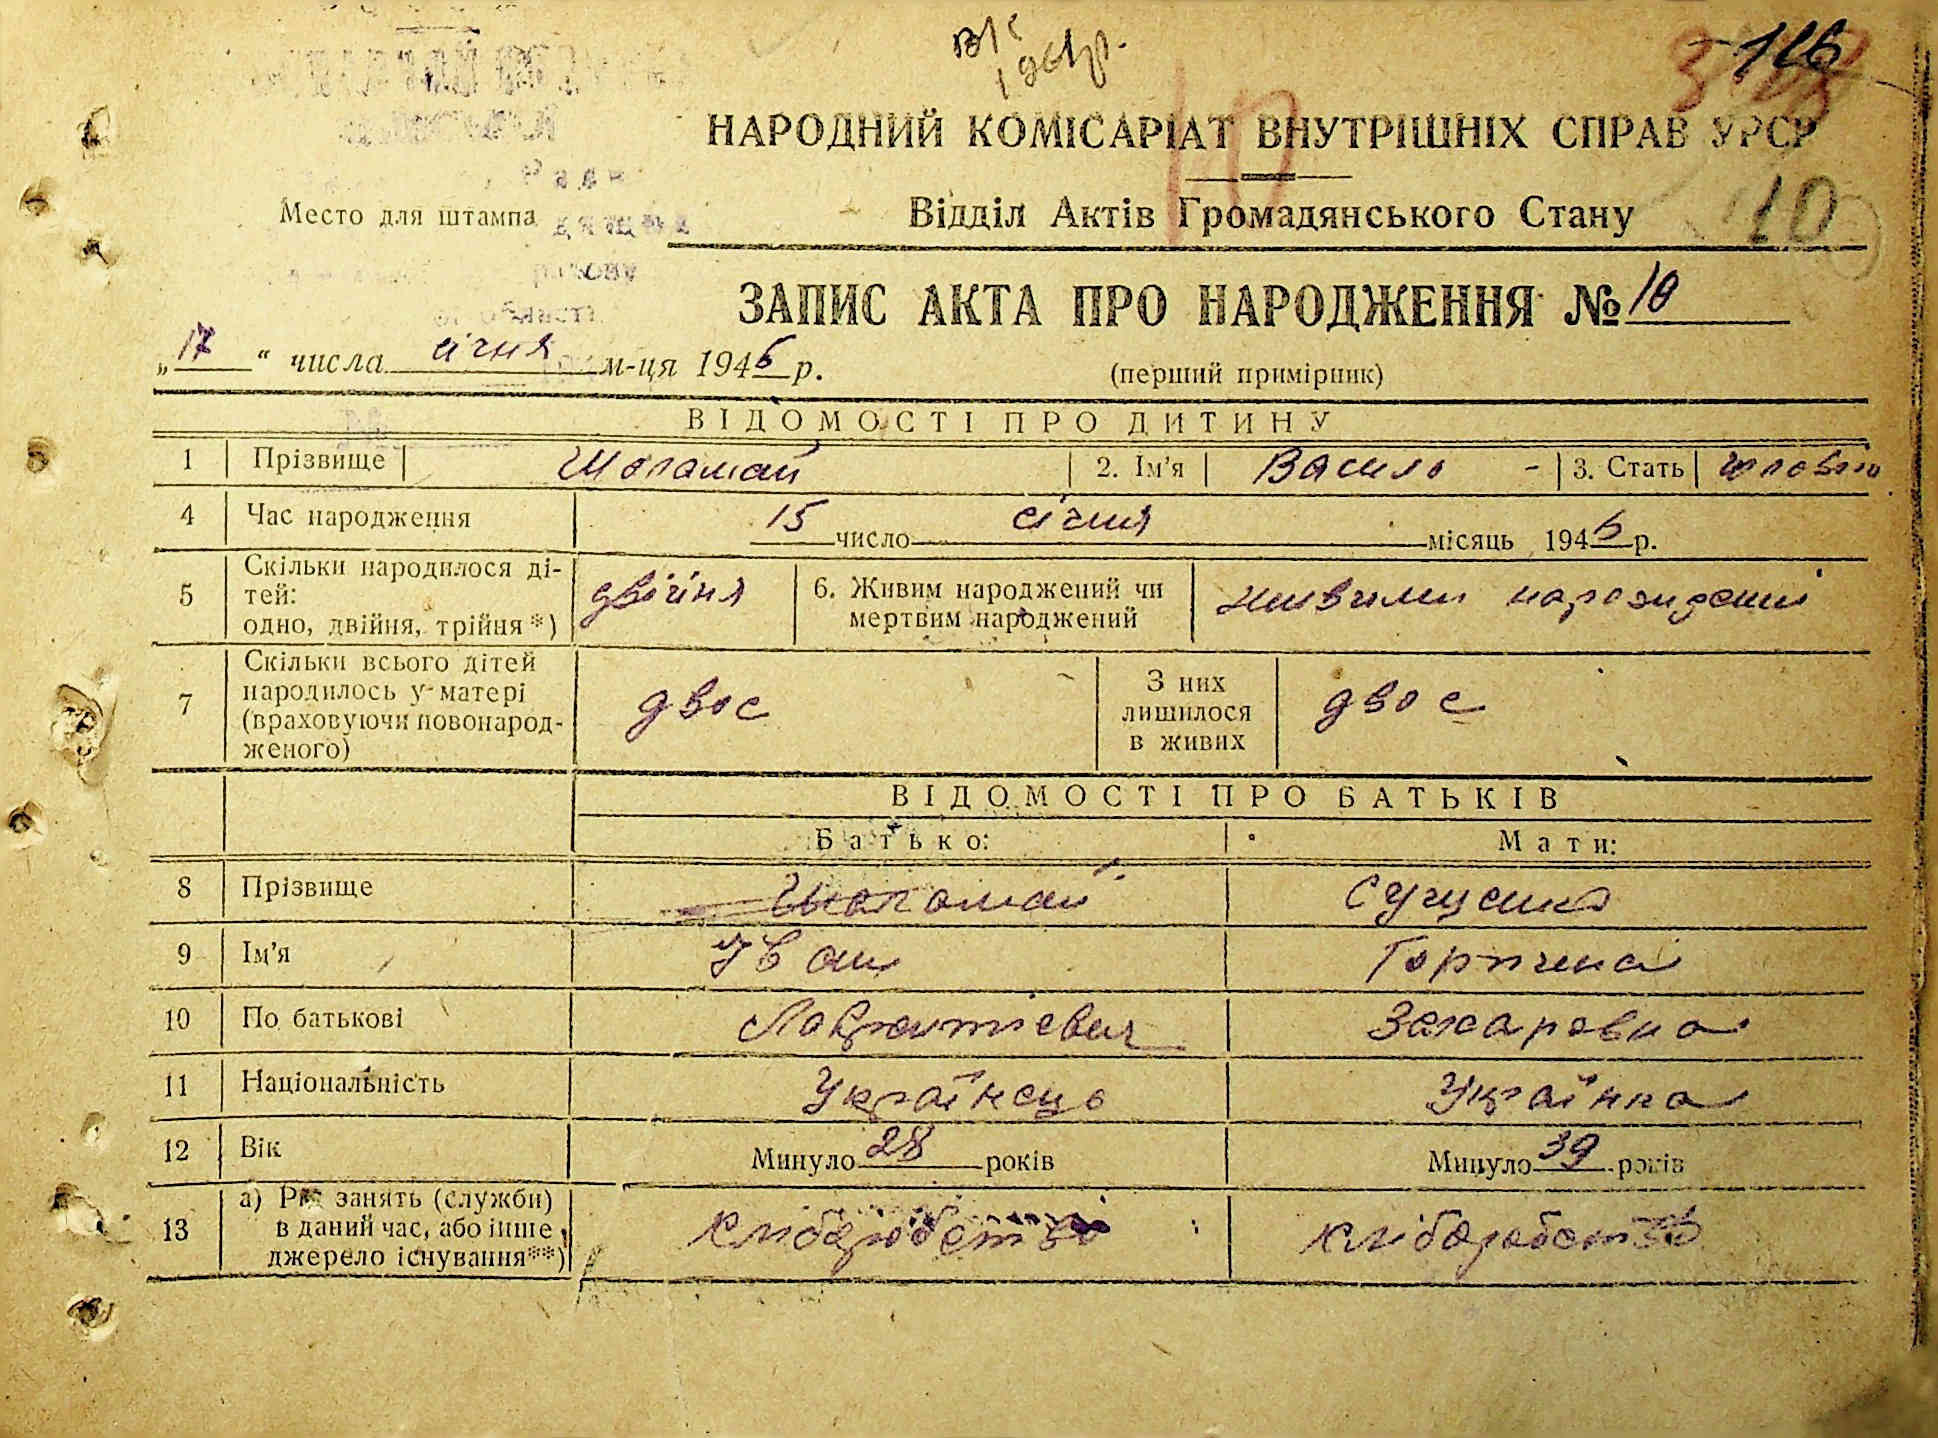 116
НАРОДНИЙ КОМІСАРІАТ ВНУТРІШНІХ СПРАВ УРСР
10
Место для штампа
Відділ Актів Громадянського Стану
10
ЗАПИС АКТА ПРО НАРОДЖЕННЯ № 10
„17“ числа січня м-ця 1946 р.
(перший примірник)
ВІДОМОСТІ ПРО ДИТИНУ
1 Прізвище Шаламай 2. Ім'я Василь - 3. Стать
4 Час народження 15 число січня місяць 1946 р.
5 Скільки народилося ді-
тей:
одно, двійня, трійня*) двійня 6. Живим народжений чи
мертвим народжений живими народжені
7 Скільки всього дітей
народилось у матері
(враховуючи новонарод-
женого) двоє З них
лишилося
в живих двоє
ВІДОМОСТІ ПРО БАТЬКІВ
Батько: Мати:
8 Прізвище Шаламай
9 Ім'я Іван Горпина
10 По батькові Лаврентієвич Захаровна
11 Національність Українець Українка
12 Вік Минуло 28 років Минуло 39 років
13 а) Рід занять (служби)
в даний час, або інше
джерело існування**) хліборобство хліборобство